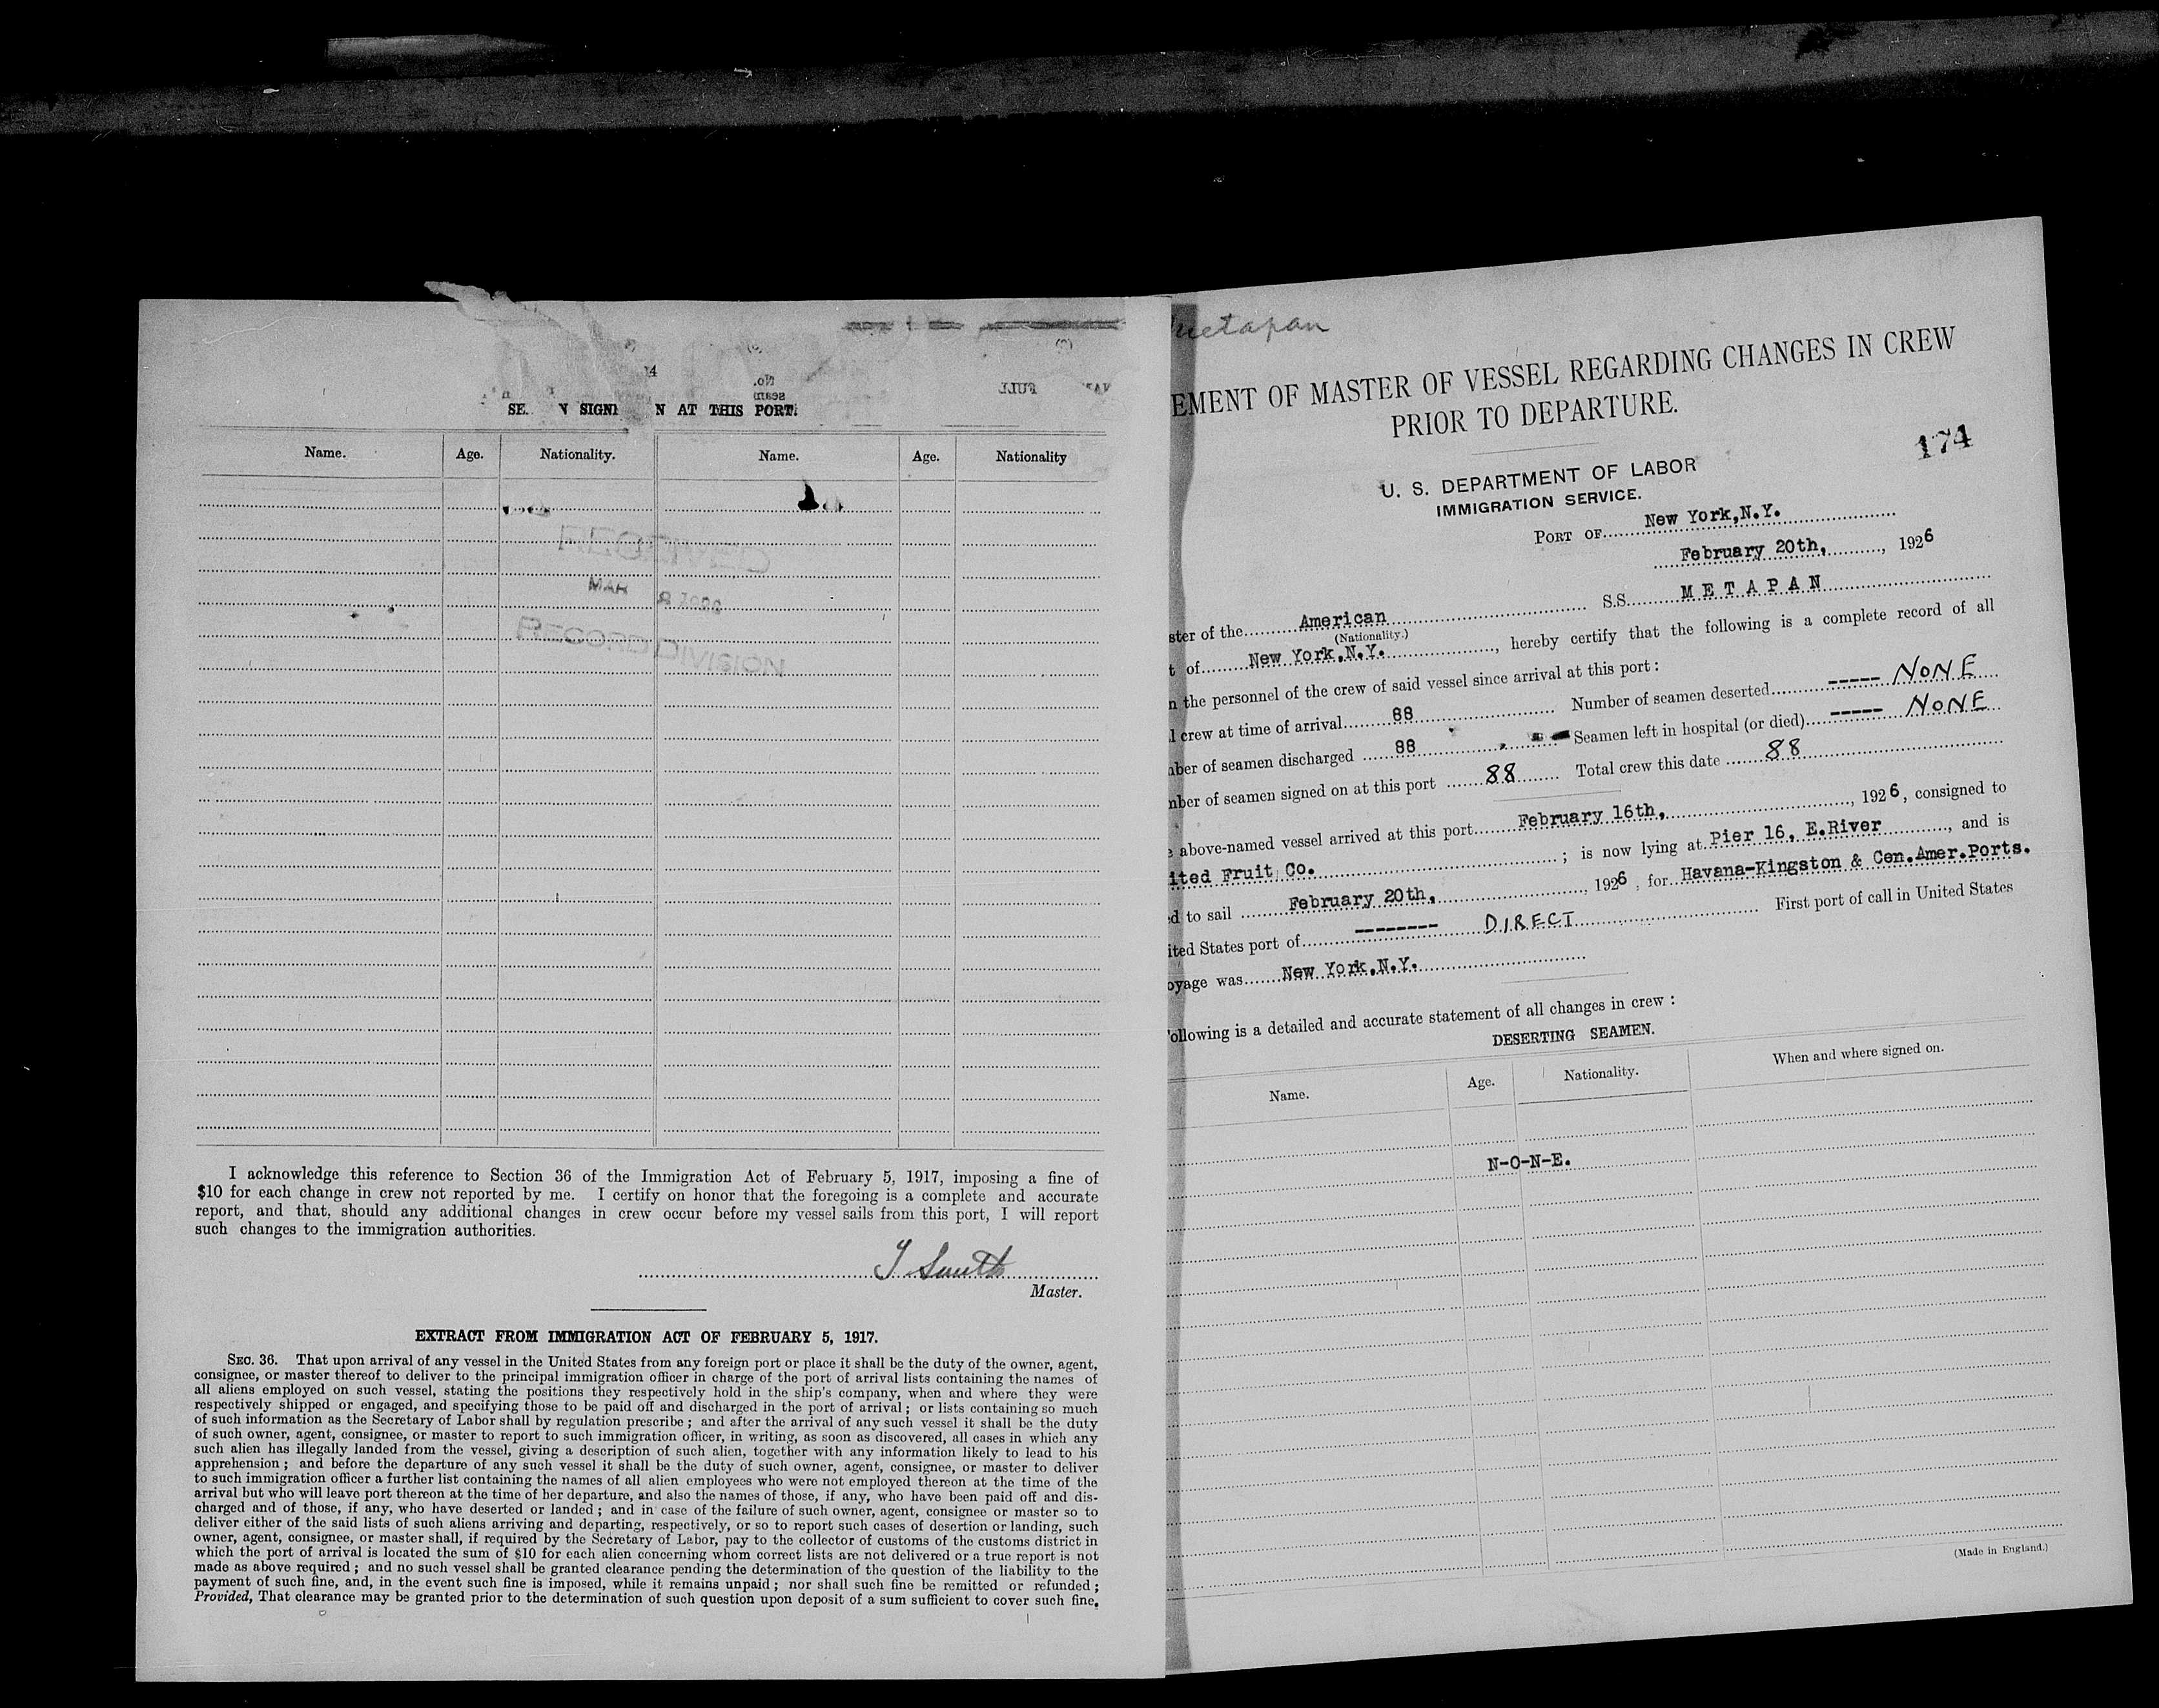 SE. N SIGN N AT THIS PORT.
Name. Age. Nationality. Name. Age. Nationality
RECEIVED
MAR 8
RECORD DIVISION
I acknowledge this reference to Section 36 of the Immigration Act of February 5, 1917, imposing a fine of
$10 for each change in crew not reported by me. I certify on honor that the foregoing is a complete and accurate
report, and that, should any additional changes in crew occur before my vessel sails from this port, I will report
such changes to the immigration authorities.
Smith
Master.
EXTRACT FROM IMMIGRATION ACT OF FEBRUARY 5, 1917.
SEC. 36. That upon arrival of any vessel in the United States from any foreign port or place it shall be the duty of the owner, agent,
consignee, or master thereof to deliver to the principal immigration officer in charge of the port of arrival lists containing the names of
all aliens employed on such vessel, stating the positions they respectively hold in the ship's company, when and where they were
respectively shipped or engaged, and specifying those to be paid off and discharged in the port of arrival; or lists containing so much
of such information as the Secretary of Labor shall by regulation prescribe; and after the arrival of any such vessel it shall be the duty
of such owner, agent, consignee, or master to report to such immigration officer, in writing, as soon as discovered, all cases in which any
such alien has illegally landed from the vessel, giving a description of such alien, together with any information likely to lead to his
apprehension; and before the departure of any such vessel it shall be the duty of such owner, agent, consignee, or master to deliver
to such immigration officer a further list containing the names of all alien employees who were not employed thereon at the time of the
arrival but who will leave port thereon at the time of her departure, and also the names of those, if any, who have been paid off and dis-
charged and of those, if any, who have deserted or landed; and in case of the failure of such owner, agent, consignee or master so to
deliver either of the said lists of such aliens arriving and departing, respectively, or so to report such cases of desertion or landing, such
owner, agent, consignee, or master shall, if required by the Secretary of Labor, pay to the collector of customs of the customs district in
which the port of arrival is located the sum of $10 for each alien concerning whom correct lists are not delivered or a true report is not
made as above required; and no such vessel shall be granted clearance pending the determination of the question of the liability to the
payment of such fine, and, in the event such fine is imposed, while it remains unpaid; nor shall such fine be remitted or refunded;
Provided, That clearance may be granted prior to the determination of such question upon deposit of a sum sufficient to cover such fine.
Metapan
EMENT OF MASTER OF VESSEL REGARDING CHANGES IN CREW
PRIOR TO DEPARTURE.
174
U. S. DEPARTMENT OF LABOR
IMMIGRATION SERVICE.
PORT OF New York,N.Y.
February 20th, , 1926
ster of the American S.S. METAPAN
(Nationality.)
t of New York,N.Y. , hereby certify that the following is a complete record of all
n the personnel of the crew of said vessel since arrival at this port:
l crew at time of arrival 88 Number of seamen deserted ----- NONE
ber of seamen discharged 88 Seamen left in hospital (or died) ----- NONE
mber of seamen signed on at this port 88 Total crew this date 88
e above-named vessel arrived at this port February 16th, , 1926, consigned to
ited Fruit Co. ; is now lying at Pier 16, E.River , and is
d to sail February 20th, , 1926, for Havana-Kingston & Cen.Amer.Ports.
ited States port of -------- DIRECT First port of call in United States
oyage was New York,N.Y.
following is a detailed and accurate statement of all changes in crew:
DESERTING SEAMEN.
Name. Age. Nationality. When and where signed on.
N-O-N-E.
(Made in England.)